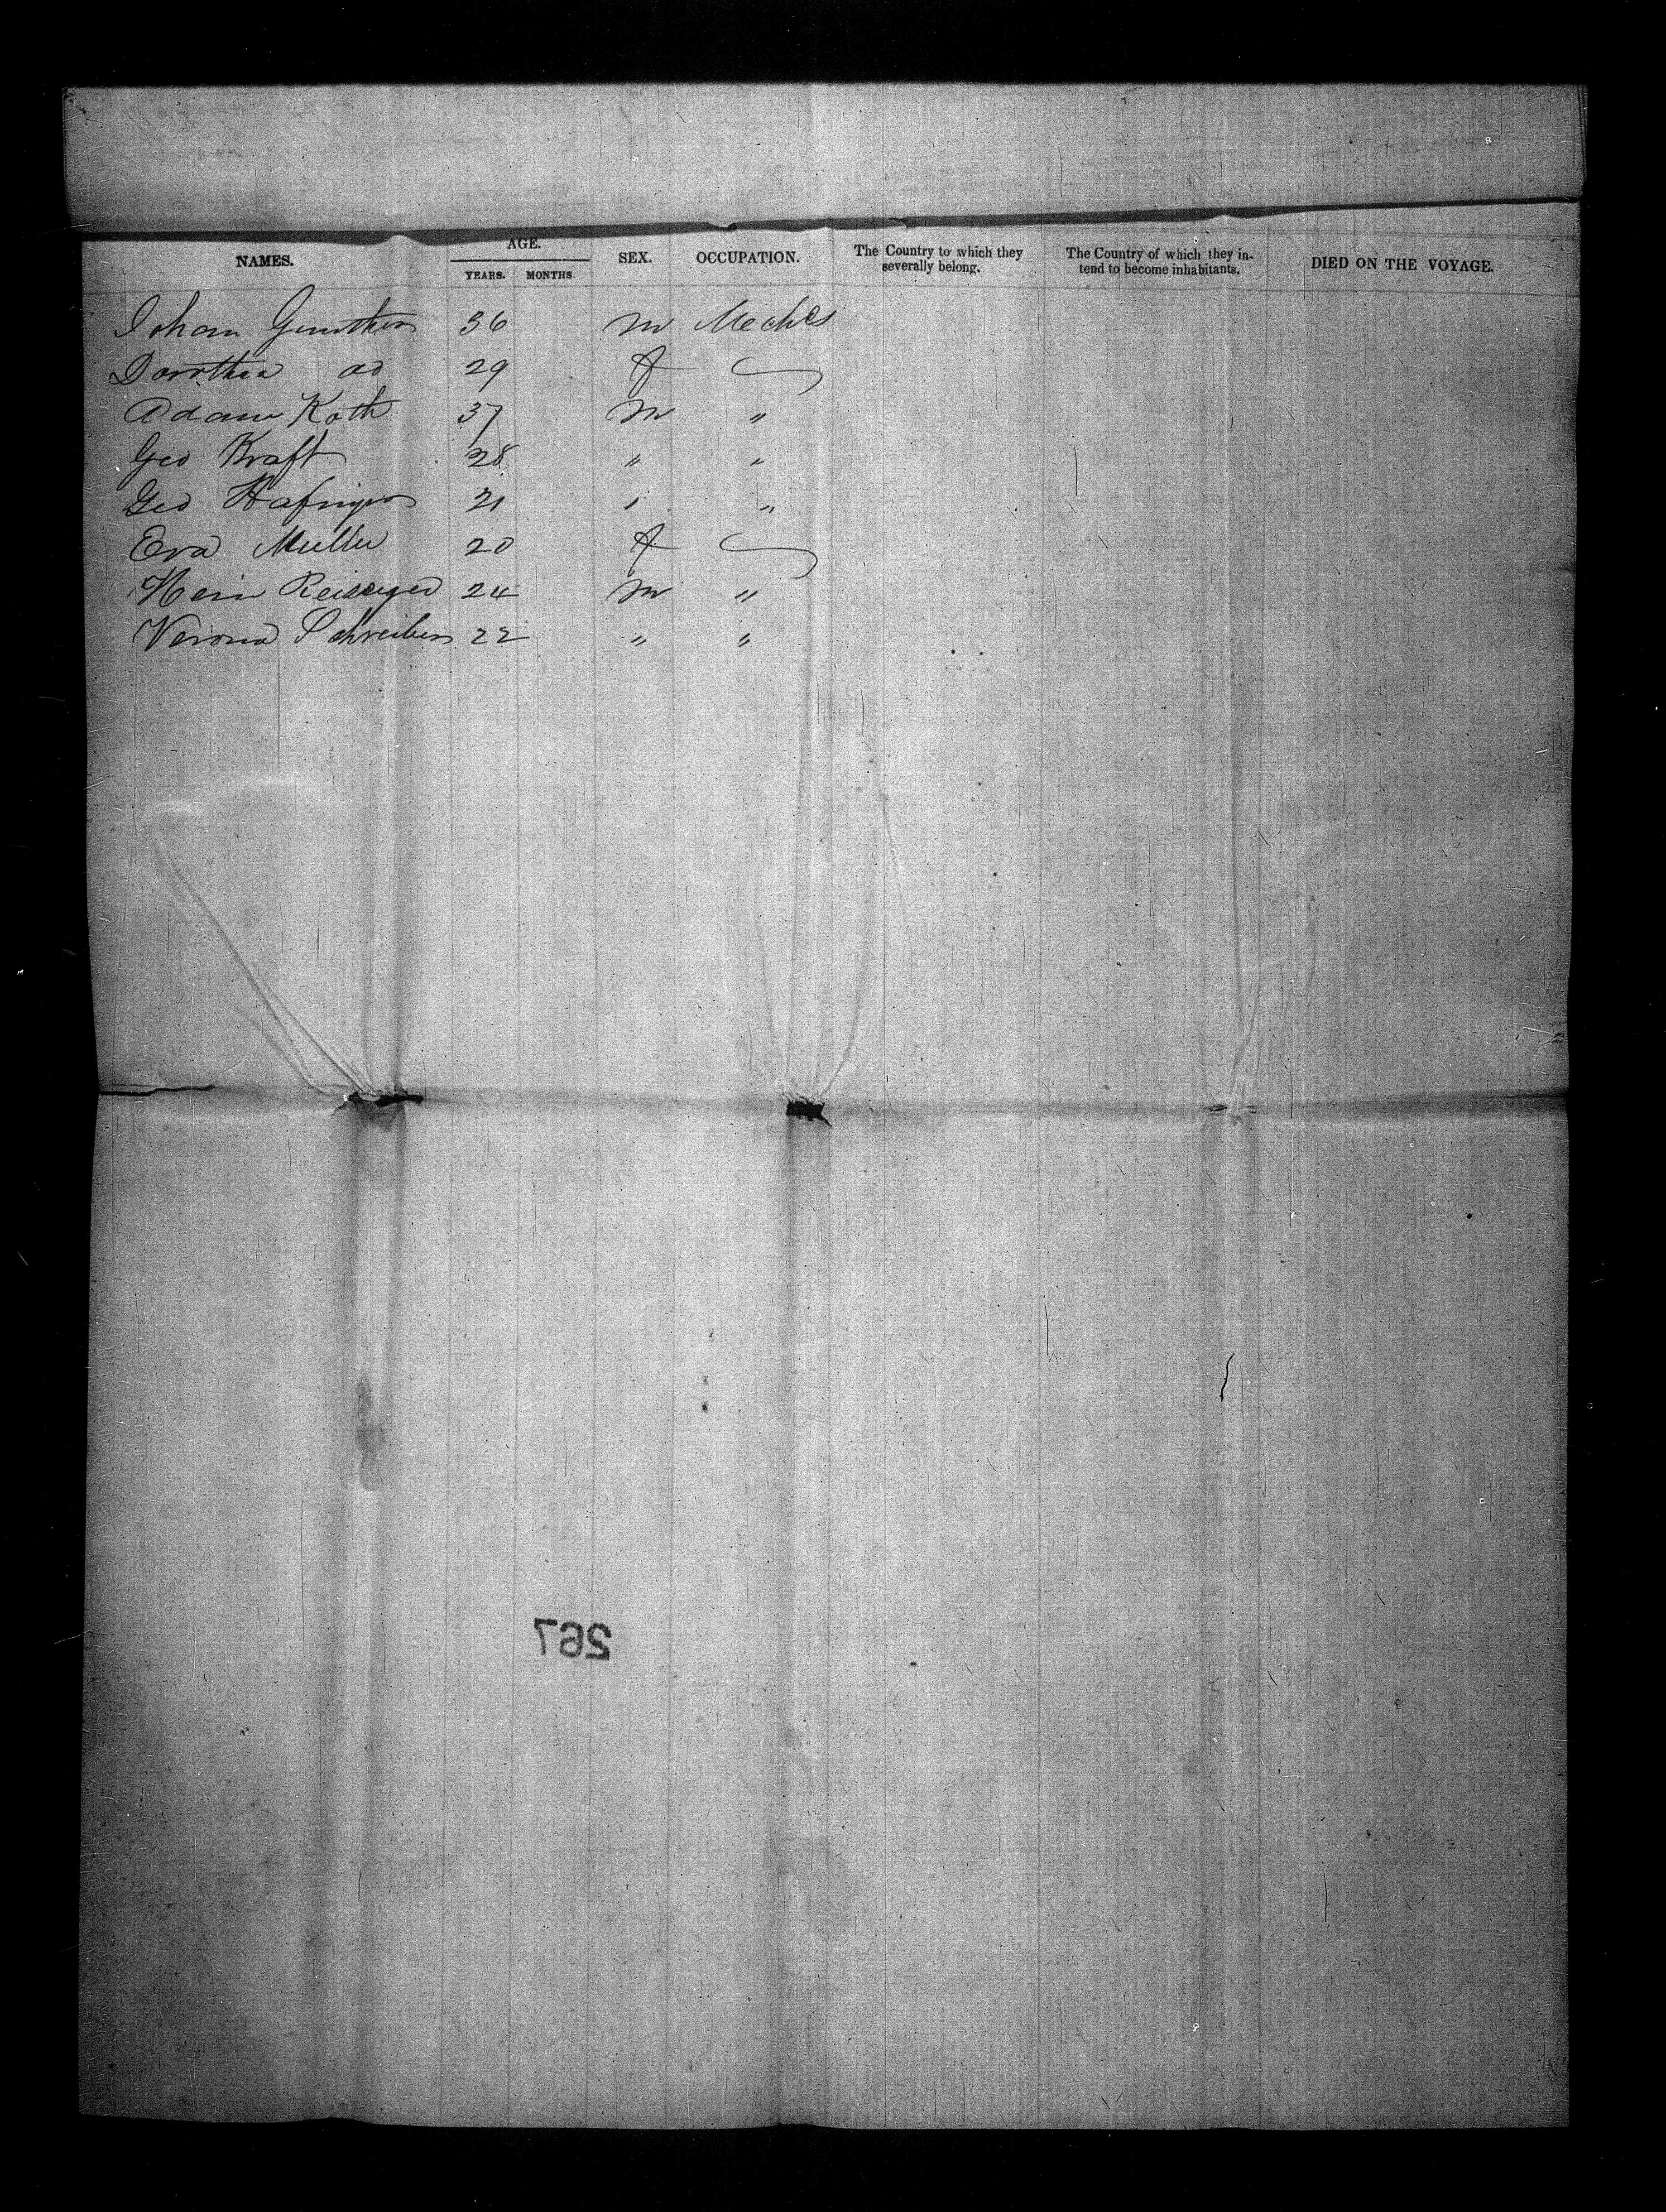 NAMES. AGE. SEX. OCCUPATION. The Country to which they severally belong. The Country of which they intend to become inhabitants. DIED ON THE VOYAGE.
YEARS. MONTHS.
Johan Gunther 36 m Mechcs
Dorothea do 29 f
Adam Koth 37 m "
Geo Kraft 28 " "
Geo 21 " "
Eva Muller 20 f
Hein 24 m "
Verona Schreiber 22 " "
267